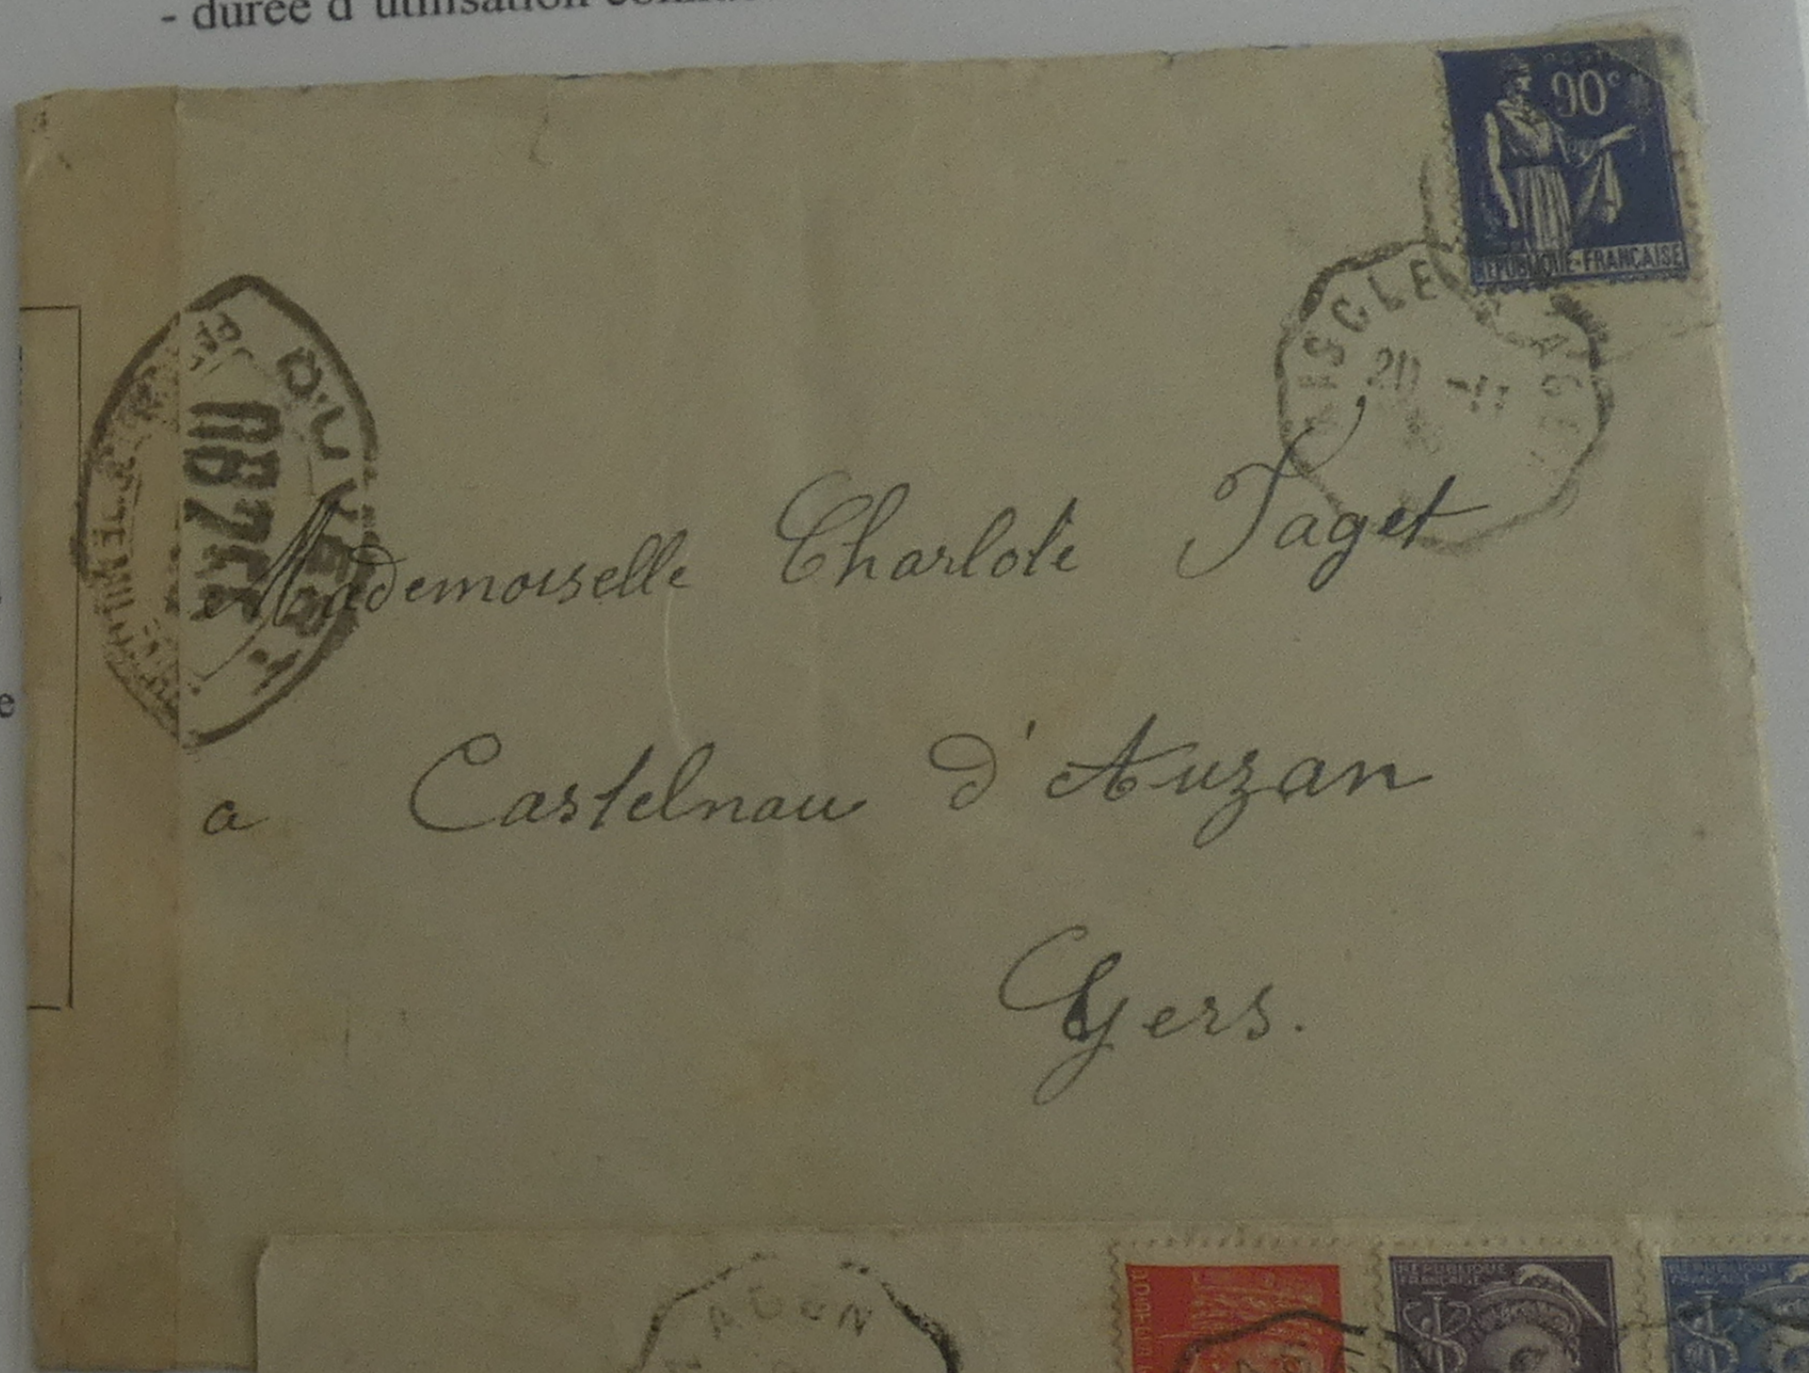 - durée d'utilisation
90c
REPUBLIQUE-FRANÇAISE
RISCLE A AGEN
20 -11
OUVERT
PAR
Mademoiselle Charlote Paget
a Castelnau d'Auzan
Gers.
e
REPUBLIQUE
FRANÇAISE
REPUBLIQUE
FRANÇAISE